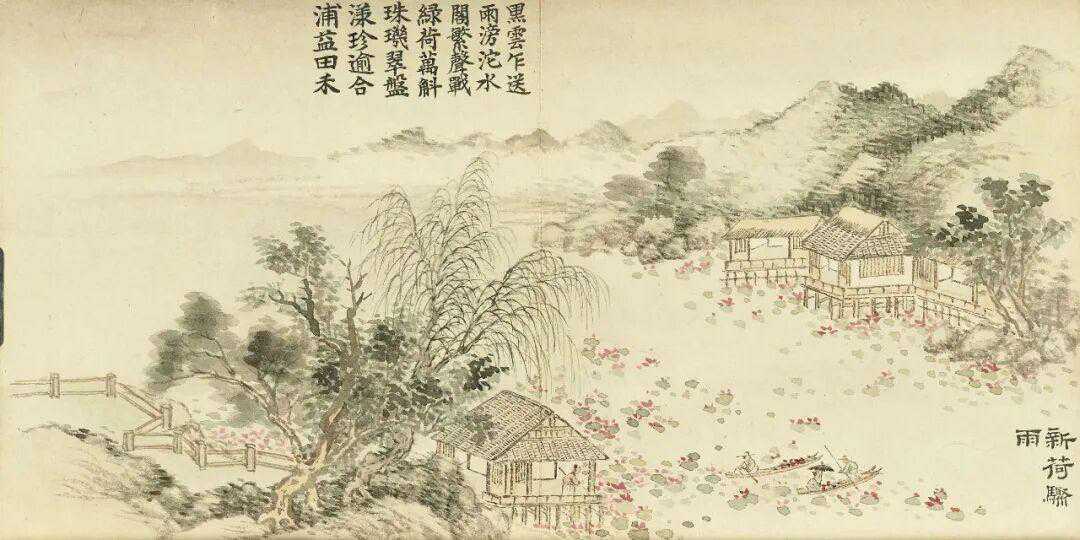 新荷驟
雨
黑雲乍送
雨滂沱水
閣繁聲戰
綠荷萬斛
珠璣翠盤
漾珍逾合
浦益田禾